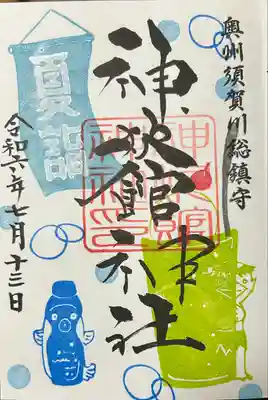 奥州須賀川総鎮守
神炊館神社
夏詣
令和六年七月十三日